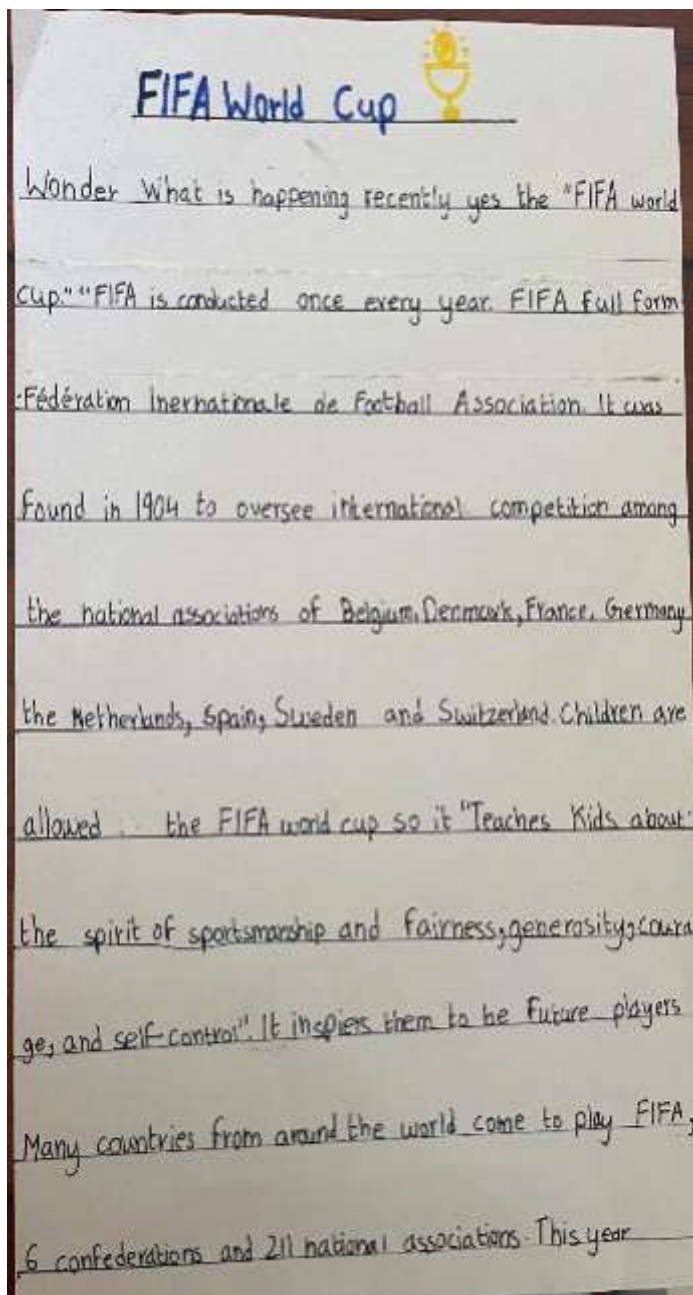 FIFA World Cup
Wonder What is happening recently yes the "FIFA world
cup." "FIFA is conducted once every year. FIFA full form
:Fédération Inernationale de Football Association. It was
found in 1904 to oversee international competition among
the national associations of Belgium, Denmark, France, Germany
the Netherlands, Spain, Sweden and Switzerland. Children are
allowed the FIFA world cup so it "Teaches Kids about
the spirit of sportsmanship and fairness, generosity, coura
ge, and self-control". It inspiers them to be future players
Many countries from around the world come to play FIFA,
6 confederations and 211 national associations. This year